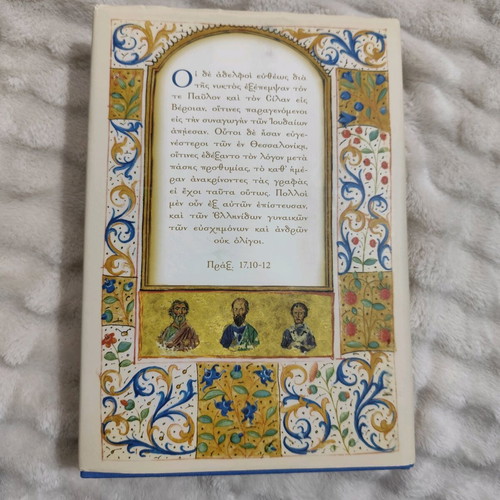 Οἱ δὲ ἀδελφοὶ εὐθέως διὰ
τῆς νυκτὸς ἐξέπεμψαν τόν
τε Παῦλον καὶ τὸν Σίλαν εἰς
Βέροιαν, οἵτινες παραγενόμενοι
εἰς τὴν συναγωγὴν τῶν Ἰουδαίων
ἀπῄεσαν. Οὗτοι δὲ ἦσαν εὐγε-
νέστεροι τῶν ἐν Θεσσαλονίκῃ,
οἵτινες ἐδέξαντο τὸν λόγον μετὰ
πάσης προθυμίας, τὸ καθ' ἡμέ-
ραν ἀνακρίνοντες τὰς γραφὰς
εἰ ἔχοι ταῦτα οὕτως. Πολλοὶ
μὲν οὖν ἐξ αὐτῶν ἐπίστευσαν,
καὶ τῶν Ἑλληνίδων γυναικῶν
τῶν εὐσχημόνων καὶ ἀνδρῶν
οὐκ ὀλίγοι.
Πράξ. 17,10-12